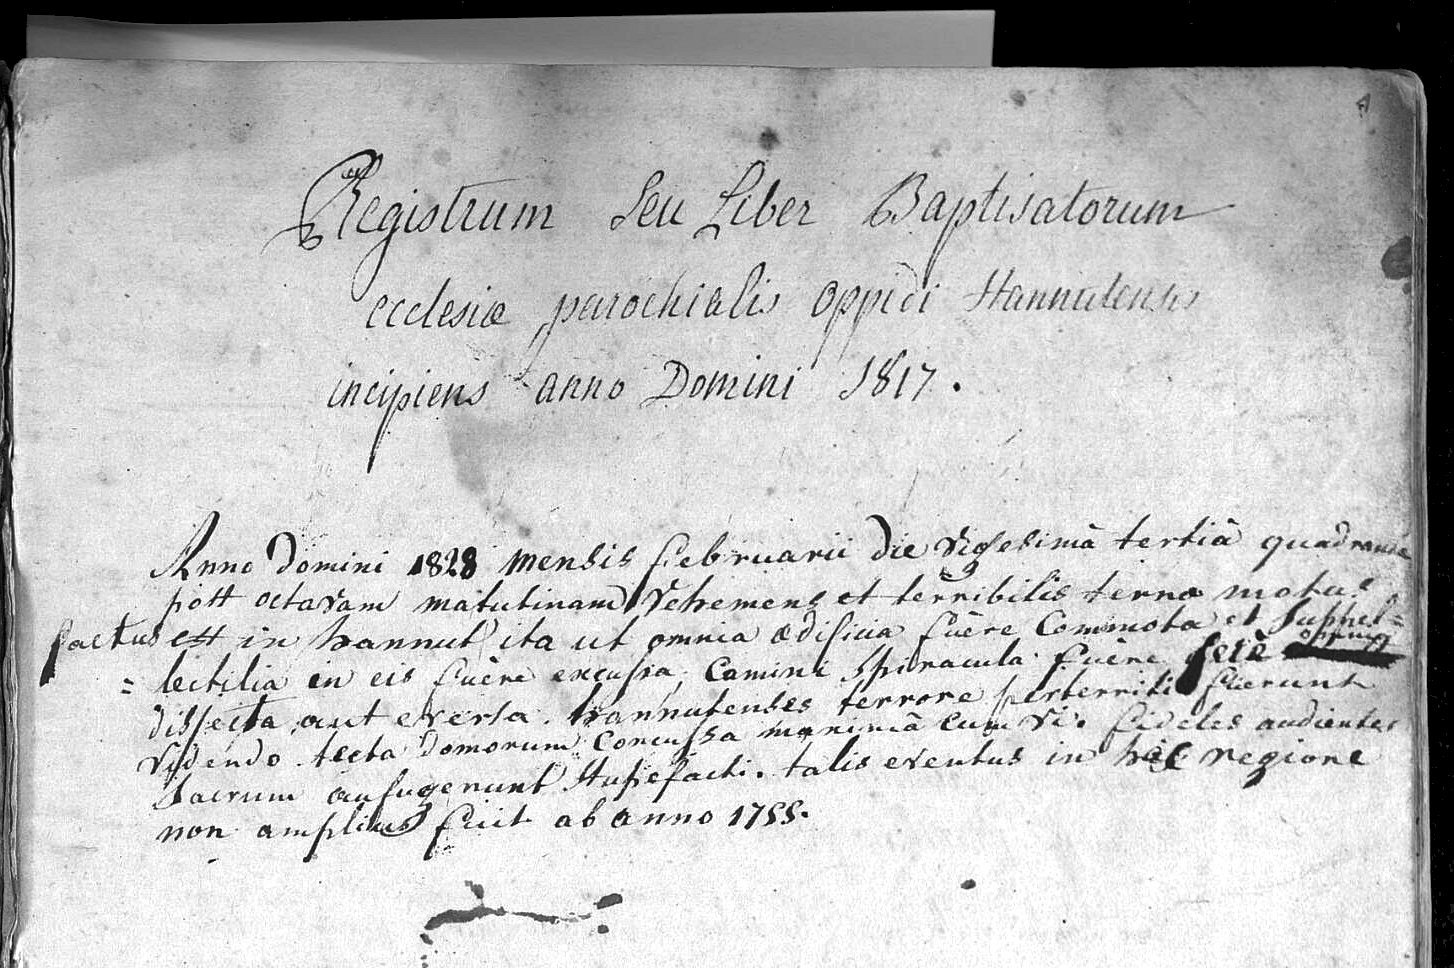 Registrum Seu Liber Baptisatorum
ecclesiæ parochialis oppidi Hannutensis
incipiens anno Domini 1817.
Anno Domini 1828 mensis februarii die vigesimâ tertiâ quadrante
post octavam matutinam vehemens et terribilis terræ motus
factus est in hannut ita ut omnia ædificia fuêre commota et suppel=
=lectilia in eis fuêre excussa, camini spiracula fuêre ferè
dissecta aut eversa. hannutenses terrore perterriti fuerunt
videndo tecta domorum concussa maximâ cum vi. fideles audientes
sacrum aufugerunt stupefacti. talis eventus in hâc regione
non amplius fuit ab anno 1755.